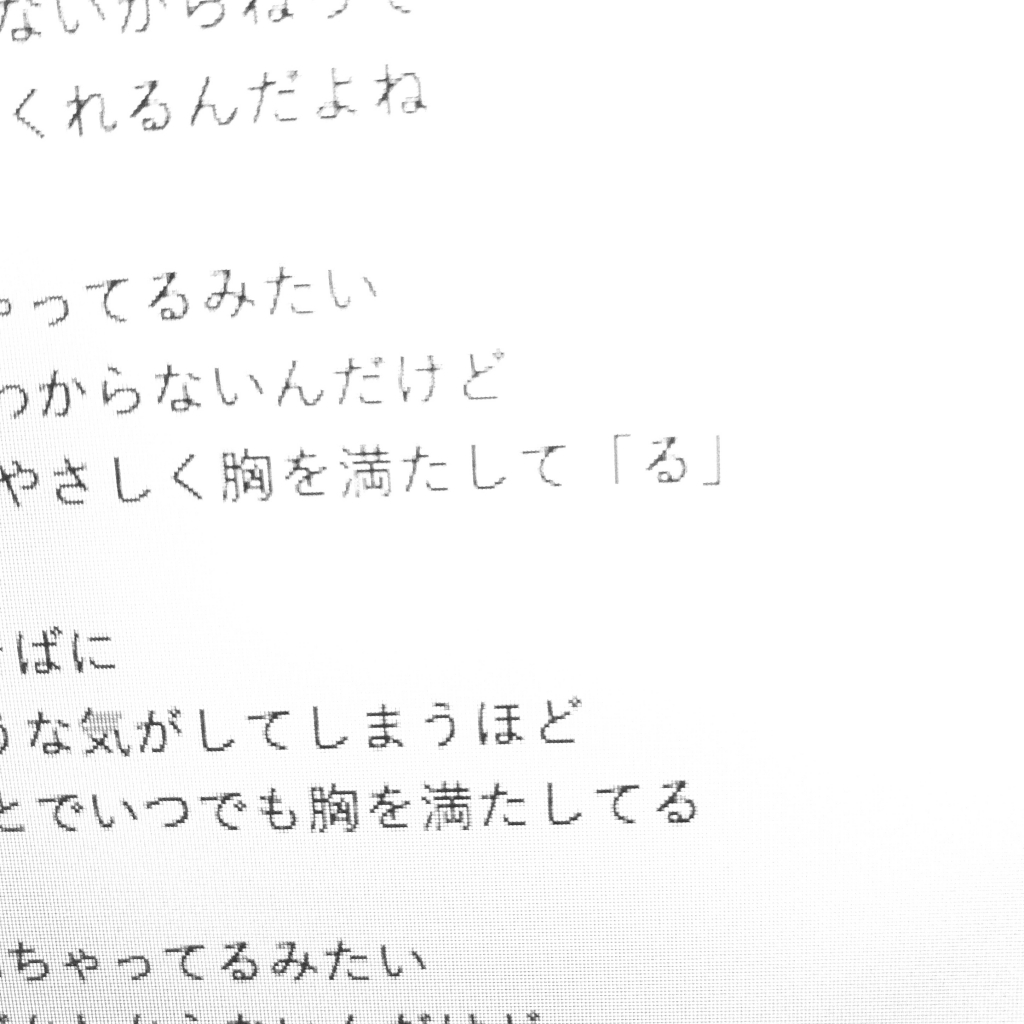 ないからねって
くれるんだよね
ゃってるみたい
わからないんだけど
やさしく胸を満たして「る」
そばに
うな気がしてしまうほど
とでいつでも胸を満たしてる
ちゃってるみたい